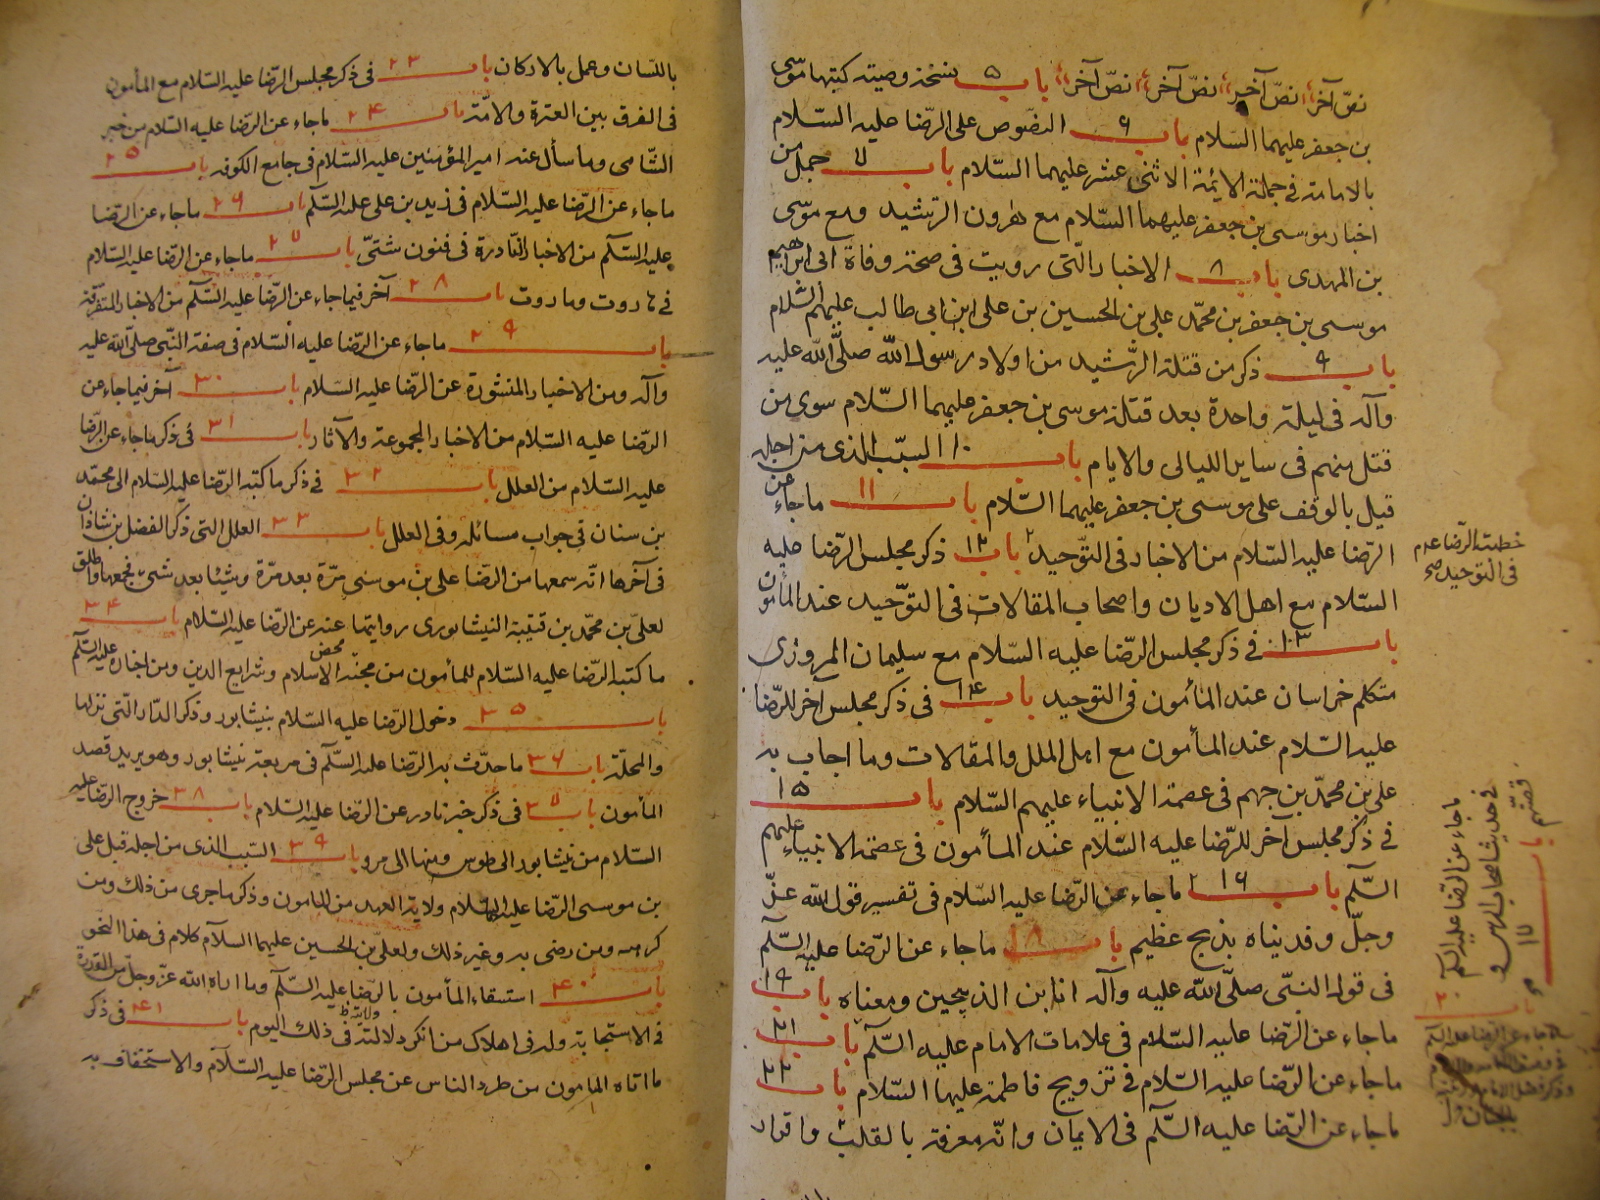 نصّ آخر، نصّ آخر، نصّ آخر، نصّ آخر، باب ۵ نسخة وصيته كتبها موسى
بن جعفر عليهما السّلام باب ۶ النصوص على الرّضا عليه السّلام
بالامامة في جملة الائمّة الاثنى عشر عليهما السّلام باب ۷ جمل من
اخبار موسى بن جعفر عليهما السّلام مع هرون الرّشيد ومع موسى
بن المهدى باب ۸ الاخبار الّتى رويت فى صحة وفاة ابى ابراهيم
موسى بن جعفر بن محمّد على بن الحسين بن على ابن ابى طالب عليهم السّلام
باب ۹ ذكر من قتلة الرّشيد من اولاد رسول الله صلّى الله عليه
وآله فى ليلة واحدة بعد قتلة موسى بن جعفر عليهما السّلام سوى من
قتل منهم فى ساير الليالى والايام باب ۱۰ السبب الذى من اجله
قيل بالوقف على موسى بن جعفر عليهما السّلام باب ۱۱ ما جاء عن
الرّضا عليه السّلام من الاخبار فى التّوحيد باب ۱۲ ذكر مجلس الرّضا عليه
السّلام مع اهل الاديان واصحاب المقالات فى التوّحيد عند المأمون
باب ۱۳ فى ذكر مجلس الرّضا عليه السّلام مع سليمان المروزى
متكلم خراسان عند المأمون فى التوحيد باب ۱۴ فى ذكر مجلس آخر للرّضا
عليه السّلام عند المأمون مع اهل الملل والمقالات وما اجاب به
على بن محمّد بن جهم فى عصمة الانبياء عليهم السّلام باب ۱۵
فى ذكر مجلس آخر للرّضا عليه السّلام عند المأمون فى عصمة الانبياء عليهم
السّلم باب ۱۶ ما جاء عن الرّضا عليه السّلام فى تفسير قول الله عزّ
وجلّ وفديناه بذبح عظيم باب ۱۸ ما جاء عن الرّضا عليه السّلم
فى قول النبّى صلّى الله عليه وآله انا بن الذبيحين ومعناه باب ۱۹
ما جاء عن الرّضا عليه السّلام فى علامات الامام عليه السّلم باب ۲۱
ما جاء عن الرّضا عليه السّلام فى تزويج فاطمة عليها السّلام باب ۲۲
ما جاء عن الرّضا عليه السّلم فى الايمان وانّه معرفة بالقلب واقرار
خطبة الرّضا عم
فى التوحيد صح
قصّتهم باب ۱۷
ما جاء عن الرّضا عليه السلم
فى حديث اصحاب الرس و
باب ۲۰
باللّسان وعمل بالاركان باب ۲۳ فى ذكر مجلس الرّضا عليه السّلام مع المأمون
فى الفرق بين العترة والامّة باب ۲۴ ما جاء عن الرّضا عليه السّلام من خبر
الشّامى وما سأل عنه امير المؤمنين عليه السّلام فى جامع الكوفه باب ۲۵
ما جاء عن الرّضا عليه السّلام فى زيد بن على عليه السّلم باب ۲۶ ما جاء عن الرّضا
عليه السّلم من الاخبار النّادرة فى فنون شتّى باب ۲۷ ما جاء عن الرّضا عليه السّلام
فى هاروت وماروت باب ۲۸ آخر فيما جاء عن الرّضا عليه السّلم من الاخبار المتفرّقة
باب ۲۹ ما جاء عن الرّضا عليه السّلام فى صفة النّبى صلّى الله عليه
وآله ومن الاخبار المنشورة عن الرّضا عليه السّلام باب ۳۰ آخر فيما جاء عن
الرّضا عليه السّلام من الاخبار المجموعة والآثار باب ۳۱ فى ذكر ما جاء عن الرّضا
عليه السّلام من العلل باب ۳۲ فى ذكر ما كتبه الرّضا عليه السّلام الى محمّد
بن سنان فى جواب مسائله وفى العلل باب ۳۳ العلل التى ذكر الفضل بن شاذان
فى آخرها انّه سمعها من الرّضا على بن موسى مرّة بعد مرّة وشيئا بعد شئ فجمعها واطلق
لعلىّ بن محمّد بن قتيبة النيشابورى روايتها عنه عن الرّضا عليه السّلام باب ۳۴
ما كتبه الرّضا عليه السّلام للمأمون من محض الاسلام وشرايع الدين ومن اخباره عليه السّلم
باب ۳۵ دخول الرّضا عليه السّلام بنيشابور وذكر الدّار التى نزلها
والمحلّة باب ۳۶ ما حدّث به الرّضا عليه السّلم فى مربعة نيشابور وهو يريد قصد
المأمون باب ۳۷ فى ذكر خبر نادر عن الرّضا عليه السّلام باب ۳۸ خروج الرّضا عليه
السّلام من نيشابور الى طوس ومنها الى مرو باب ۳۹ السّبب الذى من اجله قبل على
بن موسى الرّضا عليه السّلام ولاية العهد من المامون وذكر ما جرى من ذلك ومن
كرهه ومن رضى به وغير ذلك ولعلى بن الحسين عليهما السلام كلام فى هذا النحو
باب ۴۰ استسقاء المأمون بالرّضا عليه السّلم وما اراه الله عزّ وجلّ من القدرة
فى الاستجابة وله فى اهلاك من انكر دلالته فى ذلك اليوم باب ۴۱ فى ذكر
ولايته ظ
ما اتاه المامون من طرد الناس عن مجلس الرّضا عليه السّلام والاستخفاف به